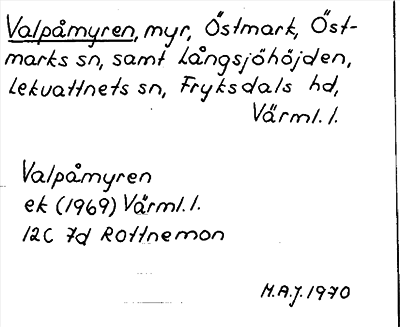 Valpåmyren, myr, Östmark, Öst-
marks sn, samt Långsjöhöjden,
Lekvattnets sn, Fryksdals hd,
Värml. l.
Valpåmyren
ek (1969) Värml. l.
12C 7d Rottnemon
M.A.J. 1970